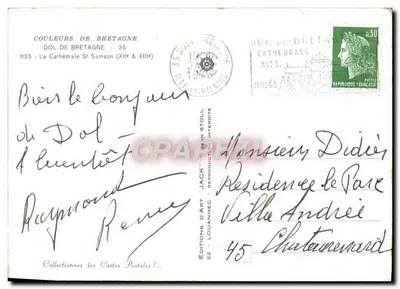 COULEURS DE BRETAGNE
DOL DE BRETAGNE - 35
1125 - La Cathédrale St Samson (XIIe & XIIIe)
35 DOL DE BRETAGNE
ILLE-ET-VILAINE
DOL-DE-BRETAGNE
CATHÉDRALE
XIIIe S.
MUSÉE
0,30
POSTES
RÉPUBLIQUE FRANÇAISE
le bonjour
de Dol -
A bientôt -
Raymond
ÉDITIONS D'ART "JACK"
22 - LOUANNEC - REPRODUCTION INTERDITE
Monsieur Didier
Residence le Parc
Villa Andrée
45
Collectionnez les Cartes Postales !...